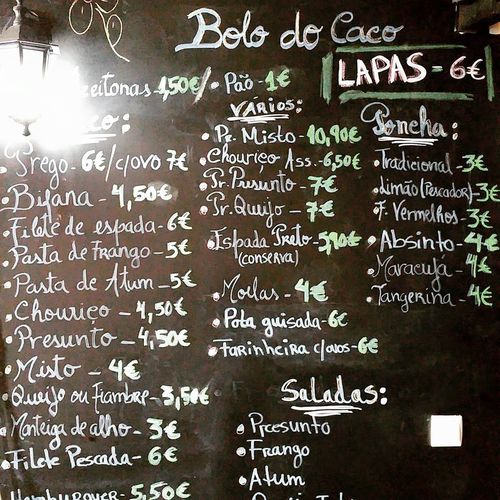 Bolo do Caco
LAPAS = 6€
eitonas 1,50€/
• Pão - 1€
co:
• Prego - 6€/c/ovo 7€
• Bifana - 4,50€
• Filete de espada - 6€
• Pasta de Frango - 5€
• Pasta de Atum - 5€
• Chouriço - 4,50€
• Presunto - 4,50€
• Misto - 4€
• Queijo ou Fiambre - 3,50€
• Manteiga de alho - 3€
• Filete Pescada - 6€
Hamburguer - 5,50€
VARIOS:
• Pr. Misto - 10,90€
• Chouriço Ass. - 6,50€
• Pr. Presunto - 7€
• Pr. Queijo - 7€
• Espada Preto - 5,90€
(CONSERVA)
• Moelas - 4€
• Pota guisada - 6€
• Farinheira c/ovos - 6€
Poncha:
• Tradicional - 3€
• Limão (Pescador) - 3€
• F. Vermelhos - 3€
• Absinto - 4€
• Maracujá - 4€
• Tangerina - 4€
Saladas:
• Presunto
• Frango
• Atum